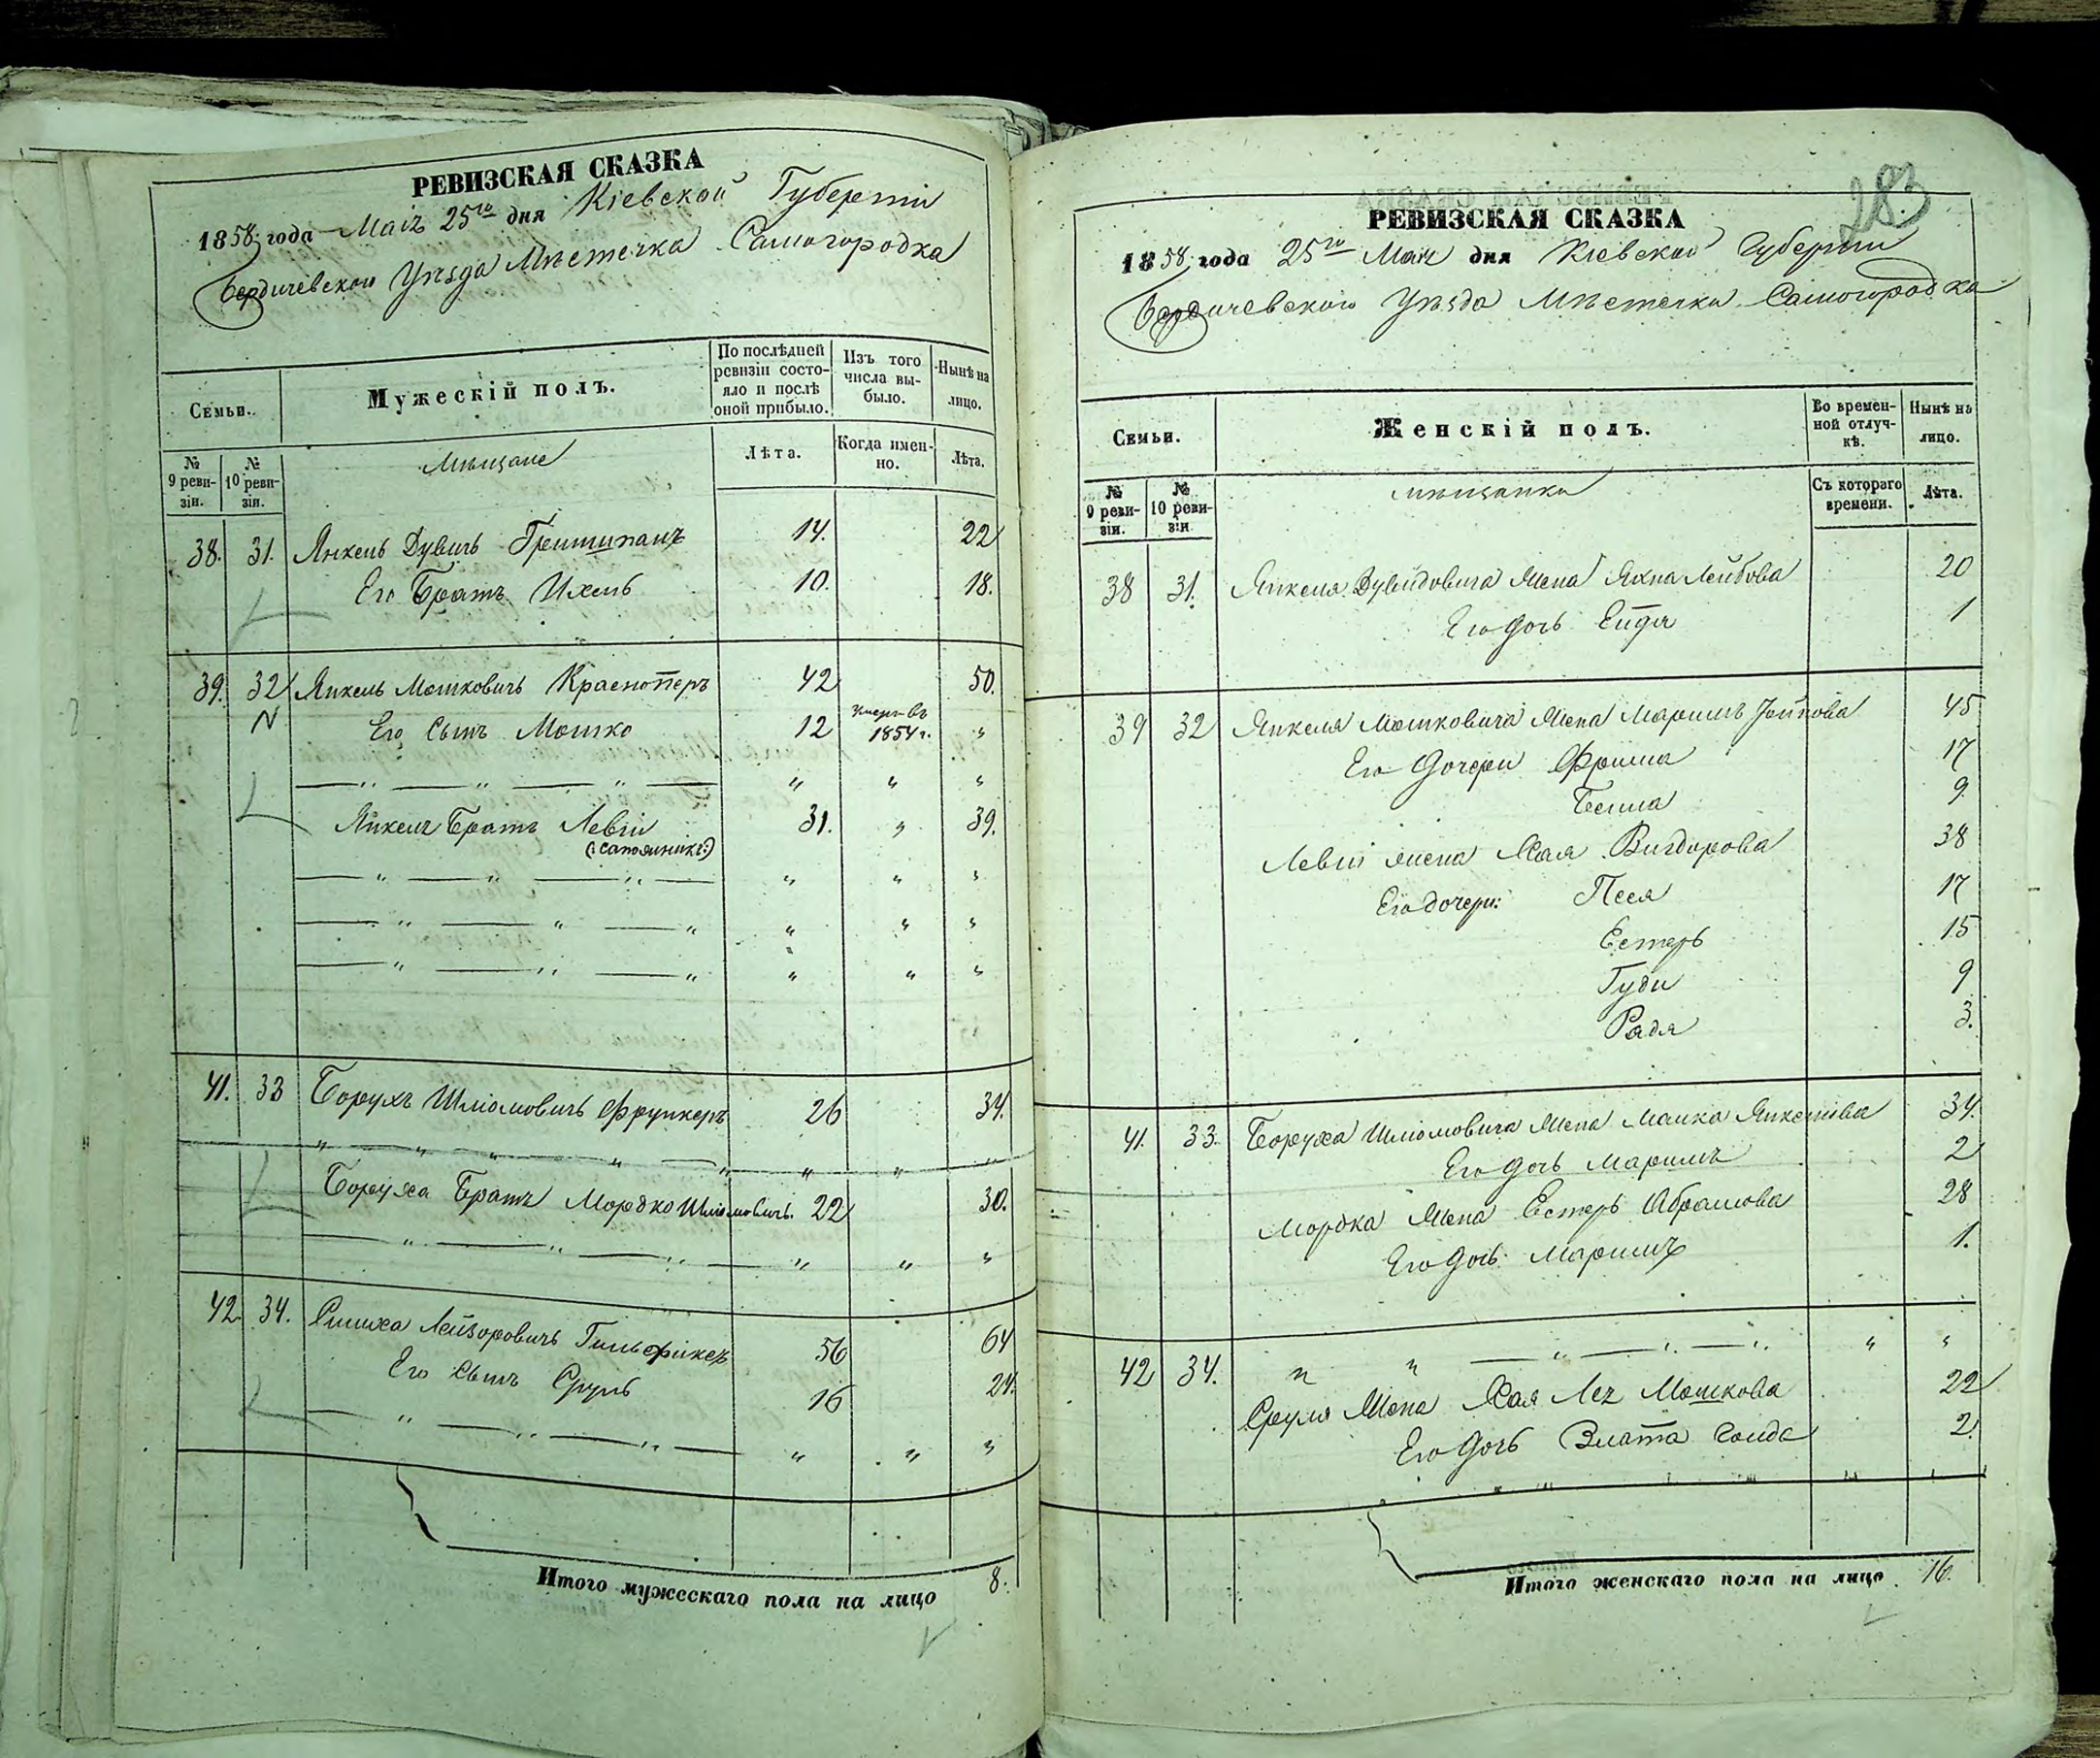 РЕВИЗСКАЯ СКАЗКА
1858 года Маія 25го дня Кіевской Губерніи
Бердичевского Уѣзда Мѣстечка Самогородка
Семьи.
Мужескій полъ.
По послѣдней ревизіи состояло и послѣ оной прибыло.
Изъ того числа выбыло.
Нынѣ на лицо.
№ 9 ревизіи.
№ 10 ревизіи.
Мѣщане
Лѣта.
Когда именно.
Лѣта.
38. 31. Янкель Дувидъ 14. 22
Его Братъ Ихель 10. 18.
39. 32 Янкель Мошковичъ Красноперъ 42 50.
N Его Сынъ Мошко 12 умеръ въ 1854 г. "
— " — " — " — " " "
Янкеля Братъ Левій 31. " 39.
— " — " — " — " " "
— " — " — " " " "
— " — " — " " " "
41. 33 Борухъ Шліомовичъ Фрункеръ 26 34.
" — " — " — " — " " " "
Боруха Братъ Мордко Шліомовичъ. 22 30.
— " — " — " — " " "
42. 34. Симха Лейзоровичъ Гильфиксъ 56 64
Его Сынъ Сруль 16 24.
— " — " — " — " " "
Итого мужескаго пола на лицо 8.
283
РЕВИЗСКАЯ СКАЗКА
1858 года 25го Мая дня Кіевской Губерніи
Бердичевского Уѣзда Мѣстечки Самогородка
Семьи.
Женскій полъ.
Во временной отлучкѣ.
Нынѣ на лицо.
№ 9 ревизіи.
№ 10 ревизіи
мѣщанки
Съ котораго времени.
Лѣта.
38 31. Янкеля Дувидовича Жена Яхна Лейбова 20
Его дочь Ендя 1
39 32 Янкеля Мошковича Жена Маримъ 45
Его Дочери Фрима 17
Бейла 9
Левія жена Хая Вигдорова 38
Его дочери: Песя 17
Естеръ 15
Гудя 9
Радя 3.
41. 33. Боруха Шліомовича Жена Малка Янкелева 34.
Его дочь Маримъ 2
Мордка Жена Естеръ Абрамова 28
Его дочь Маримъ 1.
42 34. " " — " — " — " " "
Сруля Жена Хая Лея Мошкова 22
Его дочь Злата Голда 2.
Итого женскаго пола на лицо 16.